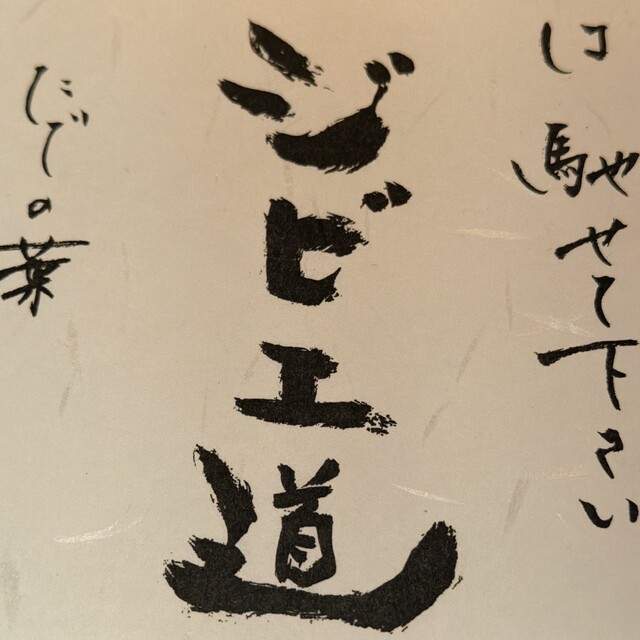 に馳せて下さい
ジビエ道
たでの葉